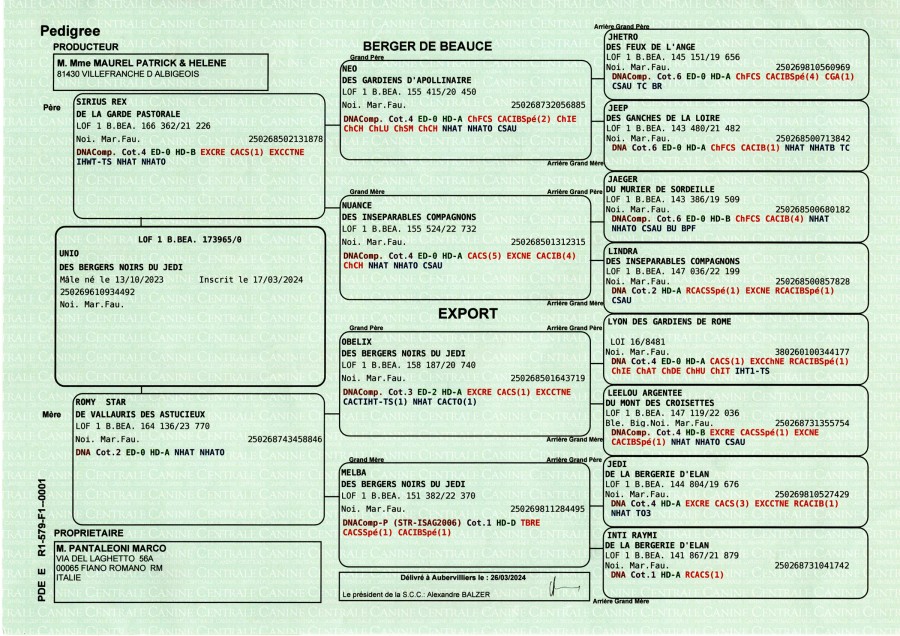 Pedigree
PRODUCTEUR
M. Mme MAUREL PATRICK & HELENE
81430 VILLEFRANCHE D ALBIGEOIS
Père
SIRIUS REX
DE LA GARDE PASTORALE
LOF 1 B.BEA. 166 362/21 226
Noi. Mar.Fau. 250268502131878
DNAComp. Cot.4 ED-0 HD-B EXCRE CACS(1) EXCCTNE
IHWT-TS NHAT NHATO
LOF 1 B.BEA. 173965/0
UNIO
DES BERGERS NOIRS DU JEDI
Mâle né le 13/10/2023 Inscrit le 17/03/2024
250269610934492
Noi. Mar.Fau.
Mère
ROMY STAR
DE VALLAURIS DES ASTUCIEUX
LOF 1 B.BEA. 164 136/23 770
Noi. Mar.Fau. 250268743458846
DNA Cot.2 ED-0 HD-A NHAT NHATO
PDE E R1-579-F1-0001
PROPRIETAIRE
M. PANTALEONI MARCO
VIA DEL LAGHETTO 56A
00065 FIANO ROMANO RM
ITALIE
BERGER DE BEAUCE
Grand Père
NEO
DES GARDIENS D'APOLLINAIRE
LOF 1 B.BEA. 155 415/20 450
Noi. Mar.Fau. 250268732056885
DNAComp. Cot.4 ED-0 HD-A ChFCS CACIBSpé(2) ChIE
ChCH ChLU ChSM ChCH NHAT NHATO CSAU
Grand Mère
NUANCE
DES INSEPARABLES COMPAGNONS
LOF 1 B.BEA. 155 524/22 732
Noi. Mar.Fau. 250268501312315
DNAComp. Cot.4 ED-0 HD-A CACS(5) EXCNE CACIB(4)
ChCH NHAT NHATO CSAU
EXPORT
Grand Père
OBELIX
DES BERGERS NOIRS DU JEDI
LOF 1 B.BEA. 158 187/20 740
Noi. Mar.Fau. 250268501643719
DNAComp. Cot.3 ED-2 HD-A EXCRE CACS(1) EXCCTNE
CACTIHT-TS(1) NHAT CACTO(1)
Grand Mère
MELBA
DES BERGERS NOIRS DU JEDI
LOF 1 B.BEA. 151 382/22 370
Noi. Mar.Fau. 250269811284495
DNAComp-P (STR-ISAG2006) Cot.1 HD-D TBRE
CACSSpé(1) CACIBSpé(1)
Délivré à Aubervilliers le : 26/03/2024
Le président de la S.C.C.: Alexandre BALZER
Arrière Grand Père
JHETRO
DES FEUX DE L'ANGE
LOF 1 B.BEA. 145 151/19 656
Noi. Mar.Fau. 250269810560969
DNAComp. Cot.6 ED-0 HD-A ChFCS CACIBSpé(4) CGA(1)
CSAU TC BR
JEEP
DES GANCHES DE LA LOIRE
LOF 1 B.BEA. 143 480/21 482
Noi. Mar.Fau. 250268500713842
DNA Cot.6 ED-0 HD-A ChFCS CACIB(1) NHAT NHATB TC
Arrière Grand Mère
Arrière Grand Père
JAEGER
DU MURIER DE SORDEILLE
LOF 1 B.BEA. 143 386/19 509
Noi. Mar.Fau. 250268500680182
DNAComp. Cot.6 ED-0 HD-B ChFCS CACIB(4) NHAT
NHATO CSAU BU BPF
LINDRA
DES INSEPARABLES COMPAGNONS
LOF 1 B.BEA. 147 036/22 199
Noi. Mar.Fau. 250268500857828
DNA Cot.2 HD-A RCACSSpé(1) EXCNE RCACIBSpé(1)
CSAU
Arrière Grand Mère
Arrière Grand Père
LYON DES GARDIENS DE ROME
LOI 16/8481
Noi. Mar.Fau. 380260100344177
DNA Cot.4 ED-0 HD-A CACS(1) EXCChNE RCACIBSpé(1)
ChIE ChAT ChDE ChHU ChIT IHT1-TS
LEELOU ARGENTEE
DU MONT DES CROISETTES
LOF 1 B.BEA. 147 119/22 036
Ble. Big.Noi. Mar.Fau. 250268731355754
DNAComp. Cot.4 HD-B EXCRE CACSSpé(1) EXCNE
CACIBSpé(1) NHAT NHATO CSAU
Arrière Grand Mère
Arrière Grand Père
JEDI
DE LA BERGERIE D'ELAN
LOF 1 B.BEA. 144 804/19 676
Noi. Mar.Fau. 250269810527429
DNA Cot.4 HD-A EXCRE CACS(3) EXCCTNE RCACIB(1)
NHAT TO3
INTI RAYMI
DE LA BERGERIE D'ELAN
LOF 1 B.BEA. 141 867/21 879
Noi. Mar.Fau. 250268731041742
DNA Cot.1 HD-A RCACS(1)
Arrière Grand Mère